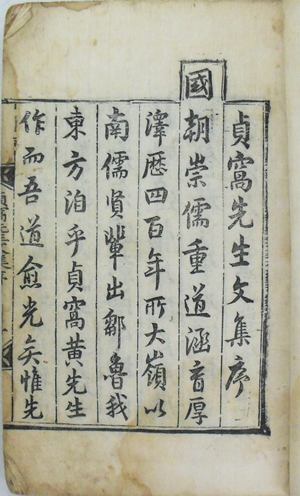 貞窩先生文集序
國朝崇儒重道涵育厚
澤歷四百年所大嶺以
南儒賢輩出鄒魯我
東方洎乎貞窩黃先生
作而吾道愈光矣惟先